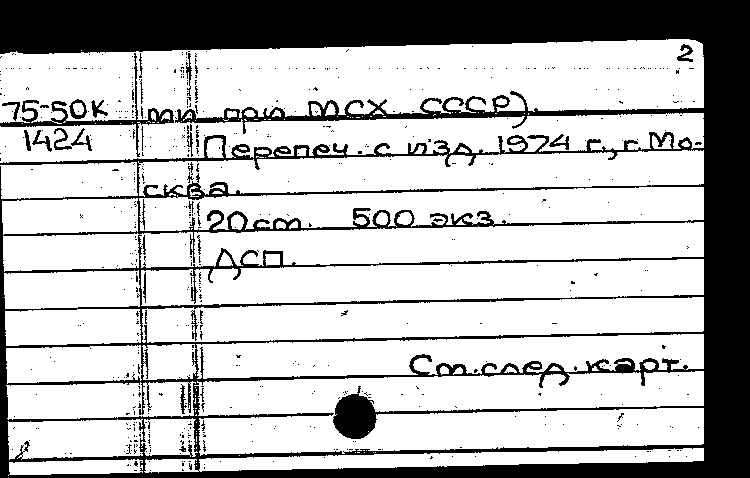 2
75-50К ти при МСХ СССР).
1424 Перепеч. с изд. 1974 г., г. Мо-
сква.
20 cm. 500 экз.
ДСП.
См. след. карт.